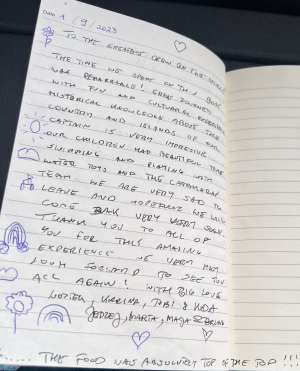 Date 1 / 9 / 2023
TO THE GREATEST CREW ON THE
THE TIME WE SPENT ON THIS BOAT
WAS REMARKABLE! GREAT JOURNEY
WITH FUN AND CULTURAL
HISTORICAL KNOWLEDGE ABOUT THE
COUNTRY AND ISLANDS OF
CAPTAIN IS VERY IMPRESSIVE
OUR CHILDREN HAD BEAUTIFUL TIME
SWIMMING AND PLAYING WITH
WATER TOYS AND THE CATAMARAN
TEAM. WE ARE VERY SAD TO
LEAVE AND HOPEFULLY WE WILL
COME BACK VERY VERY SOON
THANK YOU TO ALL OF
YOU FOR THIS AMAZING
EXPERIENCE WE VERY MUCH
LOOK FORWARD TO SEE YOU
ALL AGAIN! WITH BIG LOVE
KARINA, TOBI &
MARTA, MAJA
THE FOOD WAS ABSOLUTELY TOP OF THE TOP !!!